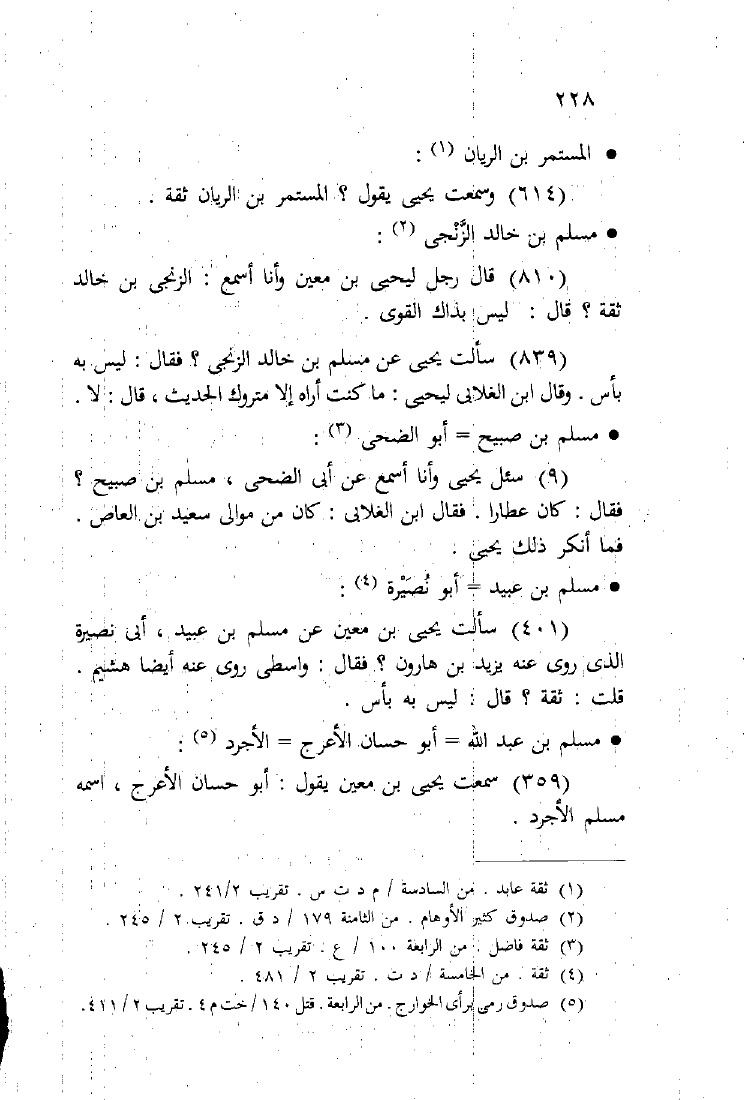 ٢٢٨
● المستمر بن الريان (١) :
(٦١٤) وسمعت يحيى يقول ؟ المستمر بن الريان ثقة .
● مسلم بن خالد الزَّنْجى (٢) :
(٨١٠) قال رجل ليحيى بن معين وأنا أسمع : الزنجى بن خالد
ثقة ؟ قال : ليس بذاك القوى .
(٨٣٩) سألت يحيى عن مسلم بن خالد الزنجى ؟ فقال : ليس به
بأس . وقال ابن الغلابى ليحيى : ما كنت أراه إلا متروك الحديث ، قال : لا .
● مسلم بن صبيح = أبو الضحى (٣) :
(٩) سئل يحيى وأنا أسمع عن أبى الضحى ، مسلم بن صبيح ؟
فقال : كان عطارا . فقال ابن الغلابى : كان من موالى سعيد بن العاص .
فما أنكر ذلك يحيى .
● مسلم بن عبيد = أبو نُصَيْرة (٤) :
(٤٠١) سألت يحيى بن معين عن مسلم بن عبيد ، أبى نصيرة
الذى روى عنه يزيد بن هارون ؟ فقال : واسطى روى عنه أيضا هشيم .
قلت : ثقة ؟ قال : ليس به بأس .
● مسلم بن عبد الله = أبو حسان الأعرج = الأجرد (٥) :
(٣٥٩) سمعت يحيى بن معين يقول : أبو حسان الأعرج ، اسمه
مسلم الأجرد .
(١) ثقة عابد . من السادسة / م د ت س . تقريب ٢٤١/٢ .
(٢) صدوق كثير الأوهام . من الثامنة ١٧٩ / د ق . تقريب ٢ / ٢٤٥ .
(٣) ثقة فاضل . من الرابعة ١٠٠ / ع . تقريب ٢ / ٢٤٥ .
(٤) ثقة . من الخامسة / د ت . تقريب ٢ / ٤٨١ .
(٥) صدوق رمى برأى الخوارج . من الرابعة . قتل ١٤٠ / خت م ٤ . تقريب ٢ / ٤١١ .